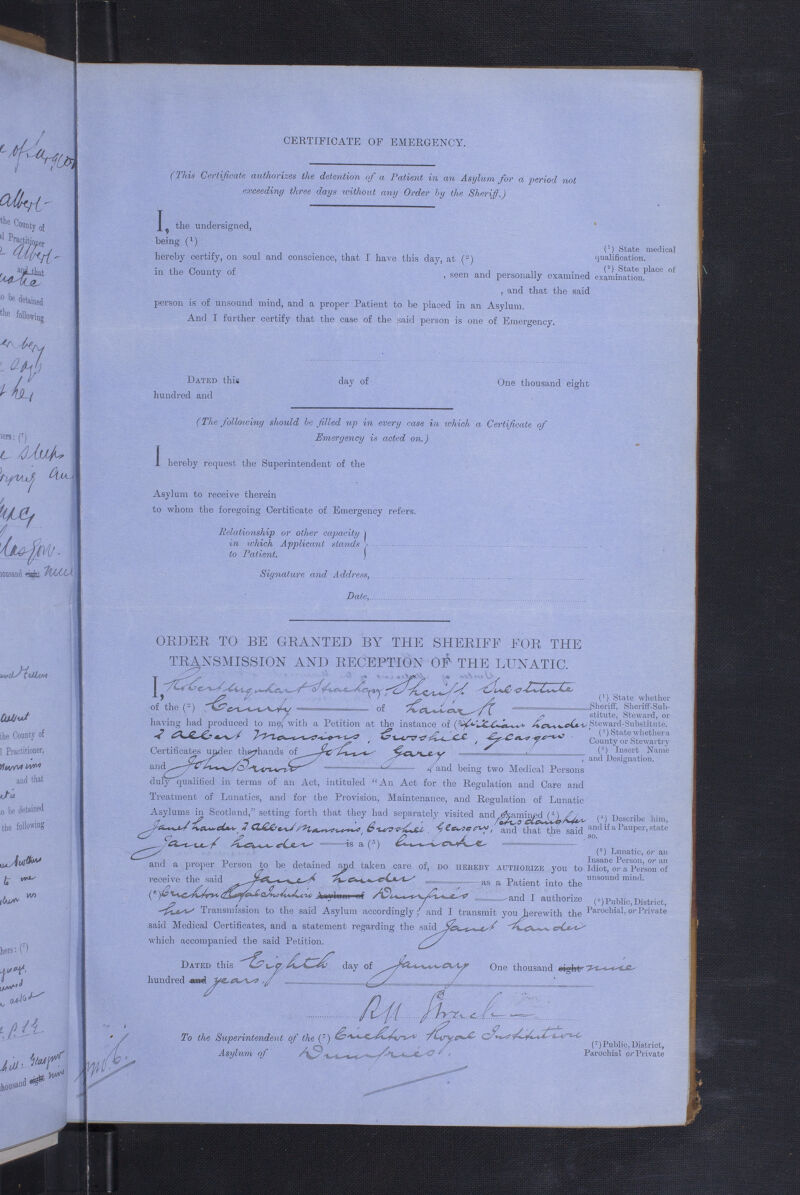 CERTIFICATE OF EMERGENCY.
(This Certificate authorizes the detention of a Patient in an Asylum for a period not
exceeding three days without any Order by the Sheriff.)
I, the undersigned,
being (¹)
hereby certify, on soul and conscience, that I have this day, at (²)
in the County of , seen and personally examined
, and that the said
person is of unsound mind, and a proper Patient to be placed in an Asylum.
And I further certify that the case of the said person is one of Emergency.
(¹) State medical
qualification.
(²) State place of
examination.
DATED this day of One thousand eight
hundred and
(The following should be filled up in every case in which a Certificate of
Emergency is acted on.)
I hereby request the Superintendent of the
Asylum to receive therein
to whom the foregoing Certificate of Emergency refers.
Relationship or other capacity
in which Applicant stands
to Patient.
Signature and Address,
Date,
ORDER TO BE GRANTED BY THE SHERIFF FOR THE
TRANSMISSION AND RECEPTION OF THE LUNATIC.
I, Robert Urquhart Strachan, Sheriff Substitute
of the (²) County of Lanark
having had produced to me, with a Petition at the instance of (³) William Lauder
2 Albert Mansions, Crosshill, Glasgow
Certificates under the hands of John Garey
and John Brown , and being two Medical Persons
duly qualified in terms of an Act, intituled "An Act for the Regulation and Care and
Treatment of Lunatics, and for the Provision, Maintenance, and Regulation of Lunatic
Asylums in Scotland," setting forth that they had separately visited and examined (⁴) his daughter
Janet Lauder 2 Albert Mansions, Crosshill, Glasgow, and that the said
Janet Lauder is a (⁵) lunatic
and a proper Person to be detained and taken care of, DO HEREBY AUTHORIZE you to
receive the said Janet Lauder as a Patient into the
(⁶) Crichton Royal Institution Asylum at Dumfries and I authorize
her Transmission to the said Asylum accordingly; and I transmit you herewith the
said Medical Certificates, and a statement regarding the said Janet Lauder
which accompanied the said Petition.
DATED this Eighth day of January One thousand eight nine
hundred and years.
R U Strachan
To the Superintendent of the (⁷) Crichton Royal Institution
Asylum of Dumfries.
(¹) State whether
Sheriff, Sheriff-Sub-
stitute, Steward, or
Steward-Substitute.
(²) State whether a
County or Stewartry
(³) Insert Name
and Designation.
(⁴) Describe him,
and if a Pauper, state
so.
(⁵) Lunatic, or an
Insane Person, or an
Idiot, or a Person of
unsound mind.
(⁶) Public, District,
Parochial, or Private
(⁷) Public, District,
Parochial or Private
Albert
the County of
al Practitioner
Albert
and that
to be detained
the following
Glasgow.
thousand eight nine
Albert
the County of
l Practitioner,
Mansions
and that
o be detained
the following
Glasgow
thousand eight nine